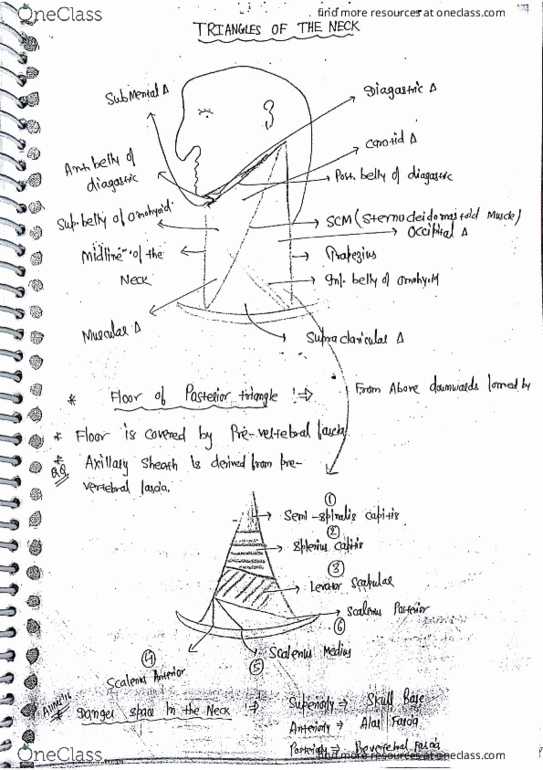 OneClass
find more resources at oneclass.com
TRIANGLES OF THE NECK
SubMental Δ
Diagastric Δ
Carotid Δ
Ant. belly of
diagastric
Post. belly of diagastric
Sup. belly of omohyoid
SCM (Sternocleidomastoid Muscle)
Occipital Δ
Midline of the
Neck
Trapezius
Inf. belly of omohyoid
Muscular Δ
Supraclavicular Δ
* Floor of Posterior triangle :⇒ From Above downwards formed by
* Floor is covered by Pre-vertebral fascia
* Axillary Sheath is derived from pre-
vertebral fascia.
①
Semi-spinalis capitis
②
Splenius capitis
③
Levator Scapulae
Scalenus Posterior
⑥
Scalenus Medius
⑤
④
Scalenus Anterior
* Danger space In the Neck ⇒ Superiorly → Skull Base
Anteriorly → Alar Fascia
Posteriorly → Prevertebral Fascia
OneClass
find more resources at oneclass.com